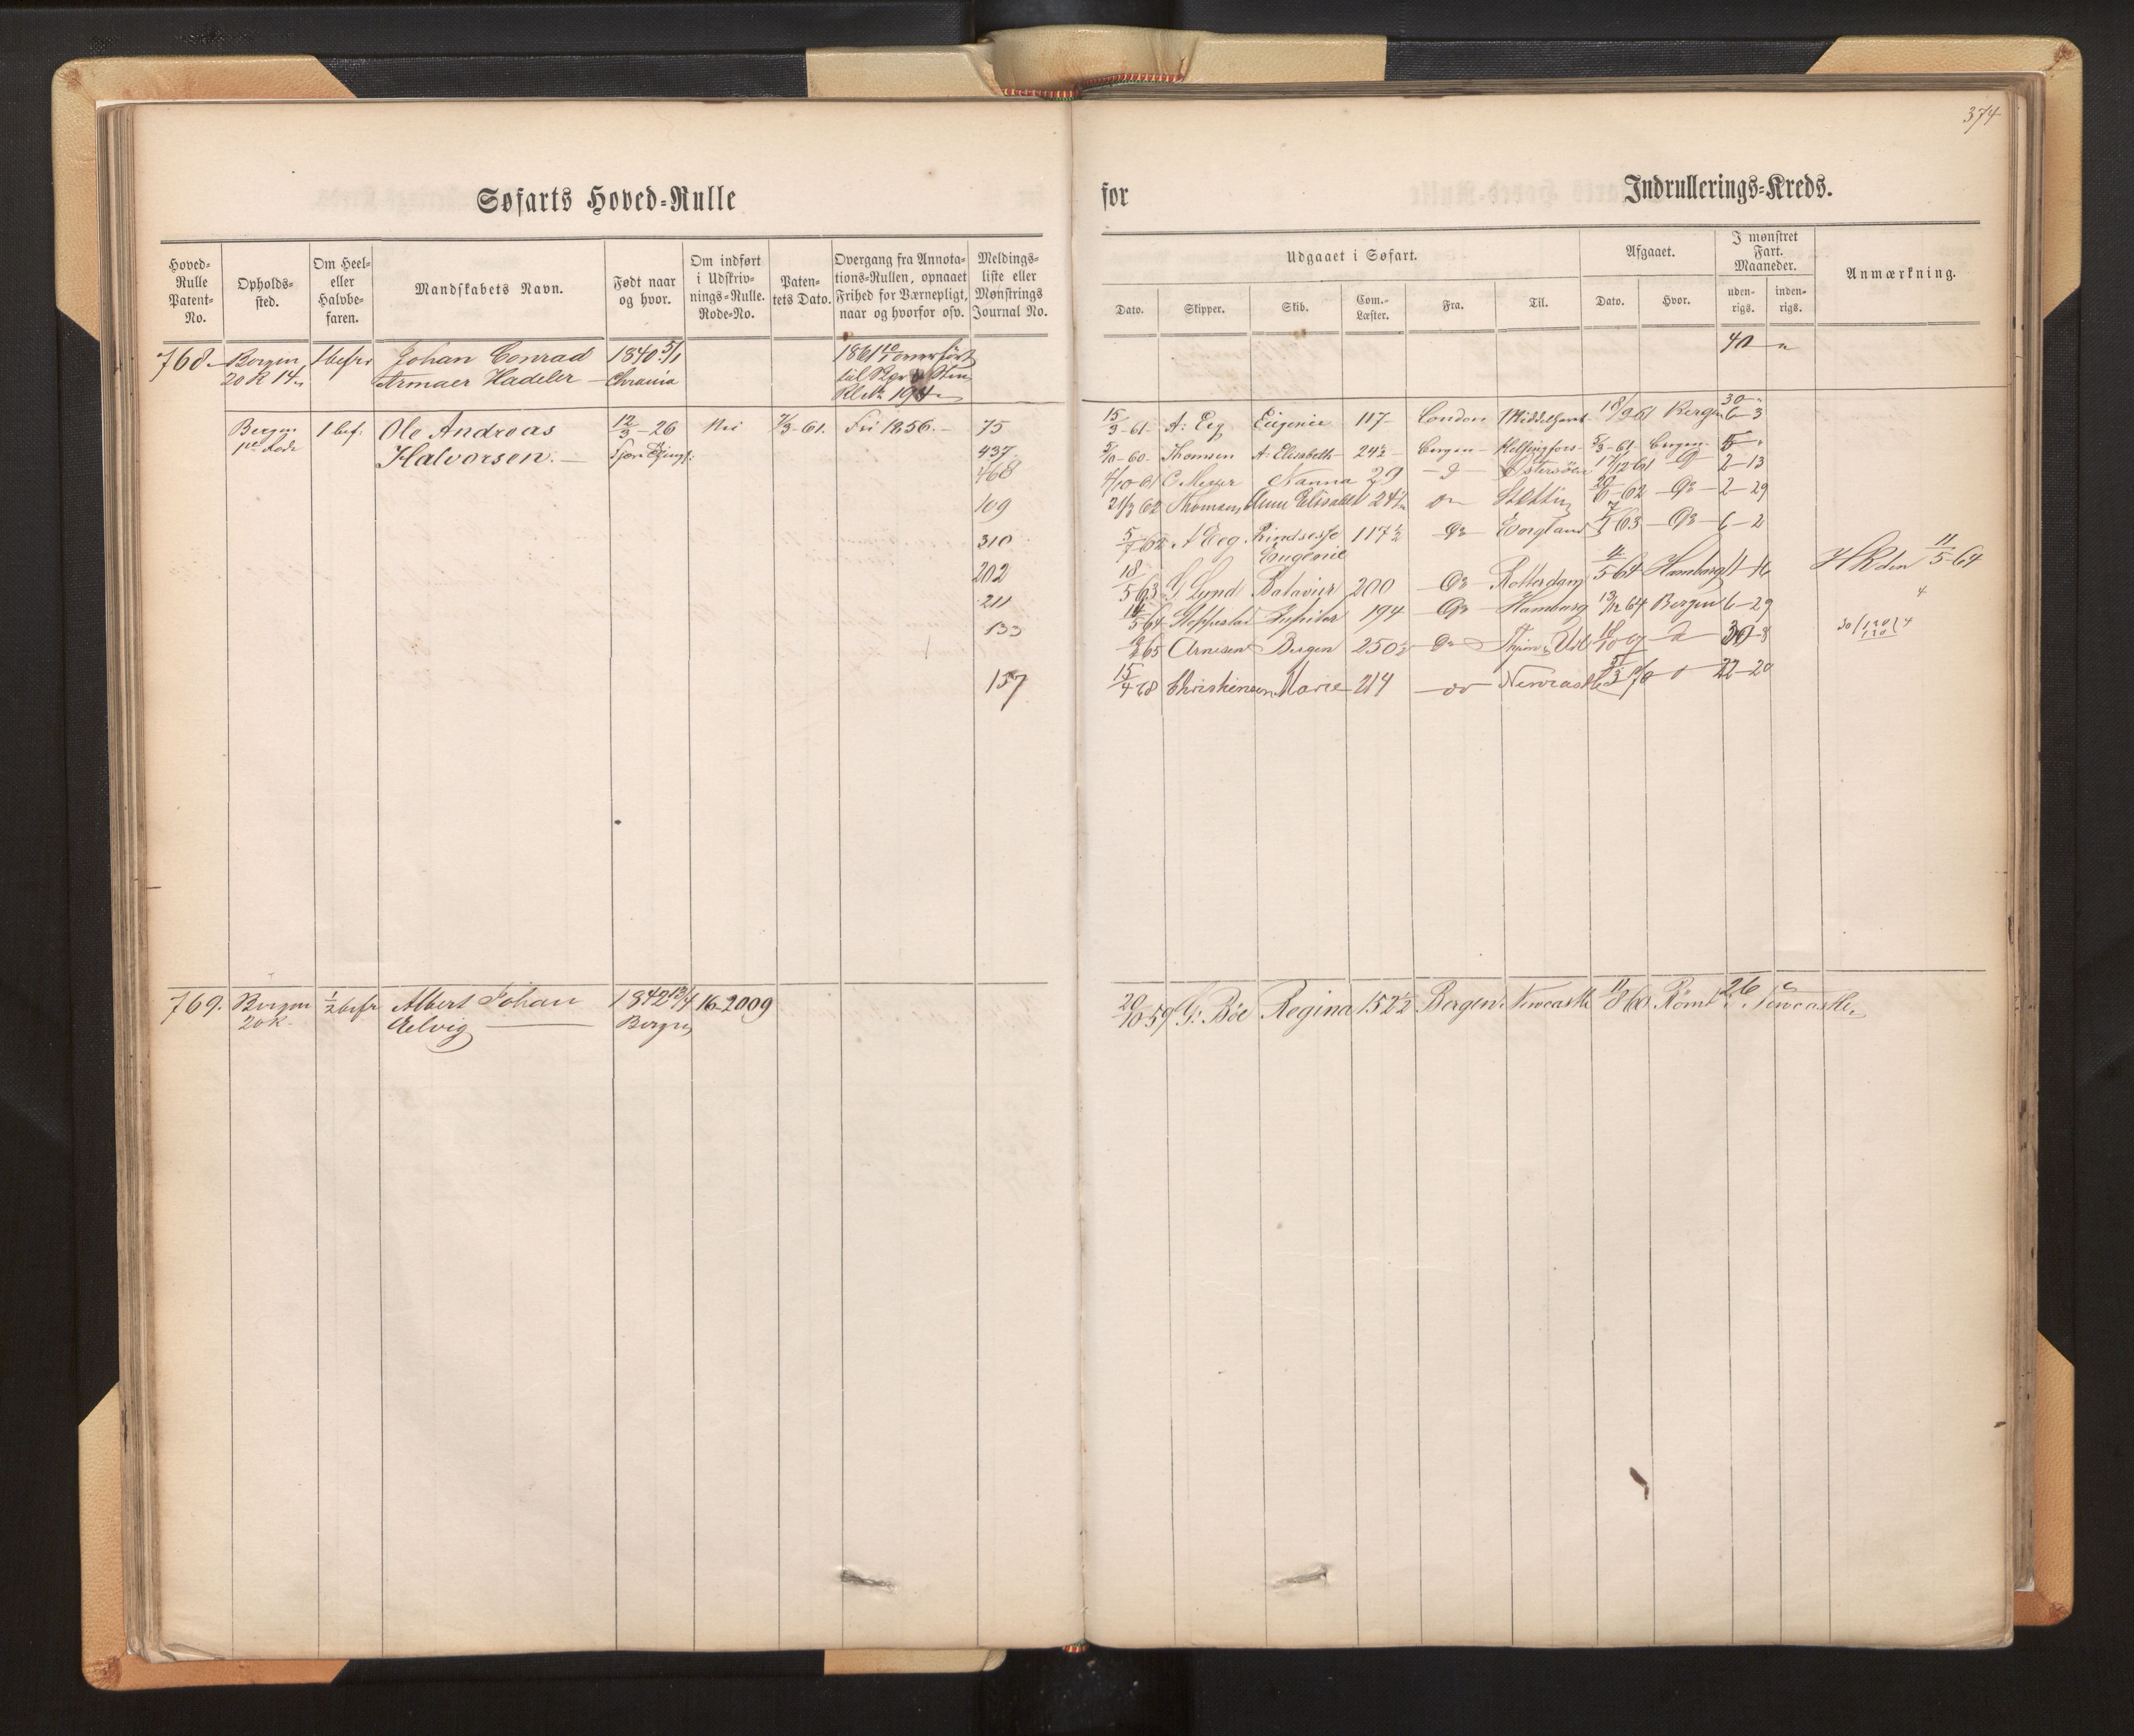 374
Søfarts Hoved-Rulle
for
Indrullerings-Kreds.
Hoved-Rulle Patent-No.
Opholds-sted.
Om Heel- eller Halvbe-faren.
Mandskabets Navn.
Født naar og hvor.
Om indført i Udskriv-nings-Rulle. Rode-No.
Paten-tets Dato.
Overgang fra Annota-tions-Rullen, opnaaet Frihed for Værnepligt, naar og hvorfor osv.
Meldings-liste eller Mønstrings Journal No.
Udgaaet i Søfart.
Afgaaet.
I mønstret Fart. Maaneder.
Anmærkning.
Dato.
Skipper.
Skib.
Com.-Læster.
Fra.
Til.
Dato.
Hvor.
uden-rigs.
inden-rigs.
768 Bergen 1 befr Johan Conrad 1840 5/1 1861 overført
20 R 14 Armaer Hadeler
40
30
Bergen 1 bef. Ole Andreas 12/3-26 Nei 7/3-61. Fri 1856. 75
Halvorsen.
15/3-61 A: Eeg Eugenie 117 London 18/9 61 Bergen 6-3
437
5/10-60 Thomsen A. Elisabeth 24½ Bergen Helsingfors 5/3-61 Bergen 5
468
4/10 61 C Meyer Nanna 29 Østersöen 17/12 61 2-13
109
21/3 62 Thomsen Anne Elisabeth 24½ Do Stettin 20/6-62 Do 2-29
310
5/7 62 A Eeg Prindsesse Eugenie 117½ Do England 7/1 63 Do 6-2
202
18/5 63 G Lund Batavier 200 Do Rotterdam 4/5 64 Hamborg 11-16 11/5-64
211
14/5 64 Jupiter 194 Do Hamborg 13/12 64 Bergen 6-29
4
133
65 Arnesen Bergen 250½ Do 18/10 67 30-8
157
15/4 68 Christensen Marie 214 do Newcastle 22-20
769. Bergen ½ befr Albert Johan 1842 13/4 16-2009
20 R Eelvig Bergen
20/10 59 G: Böe Regina 152½ Bergen Newcastle 11/8 60 Römt i Newcastle
26